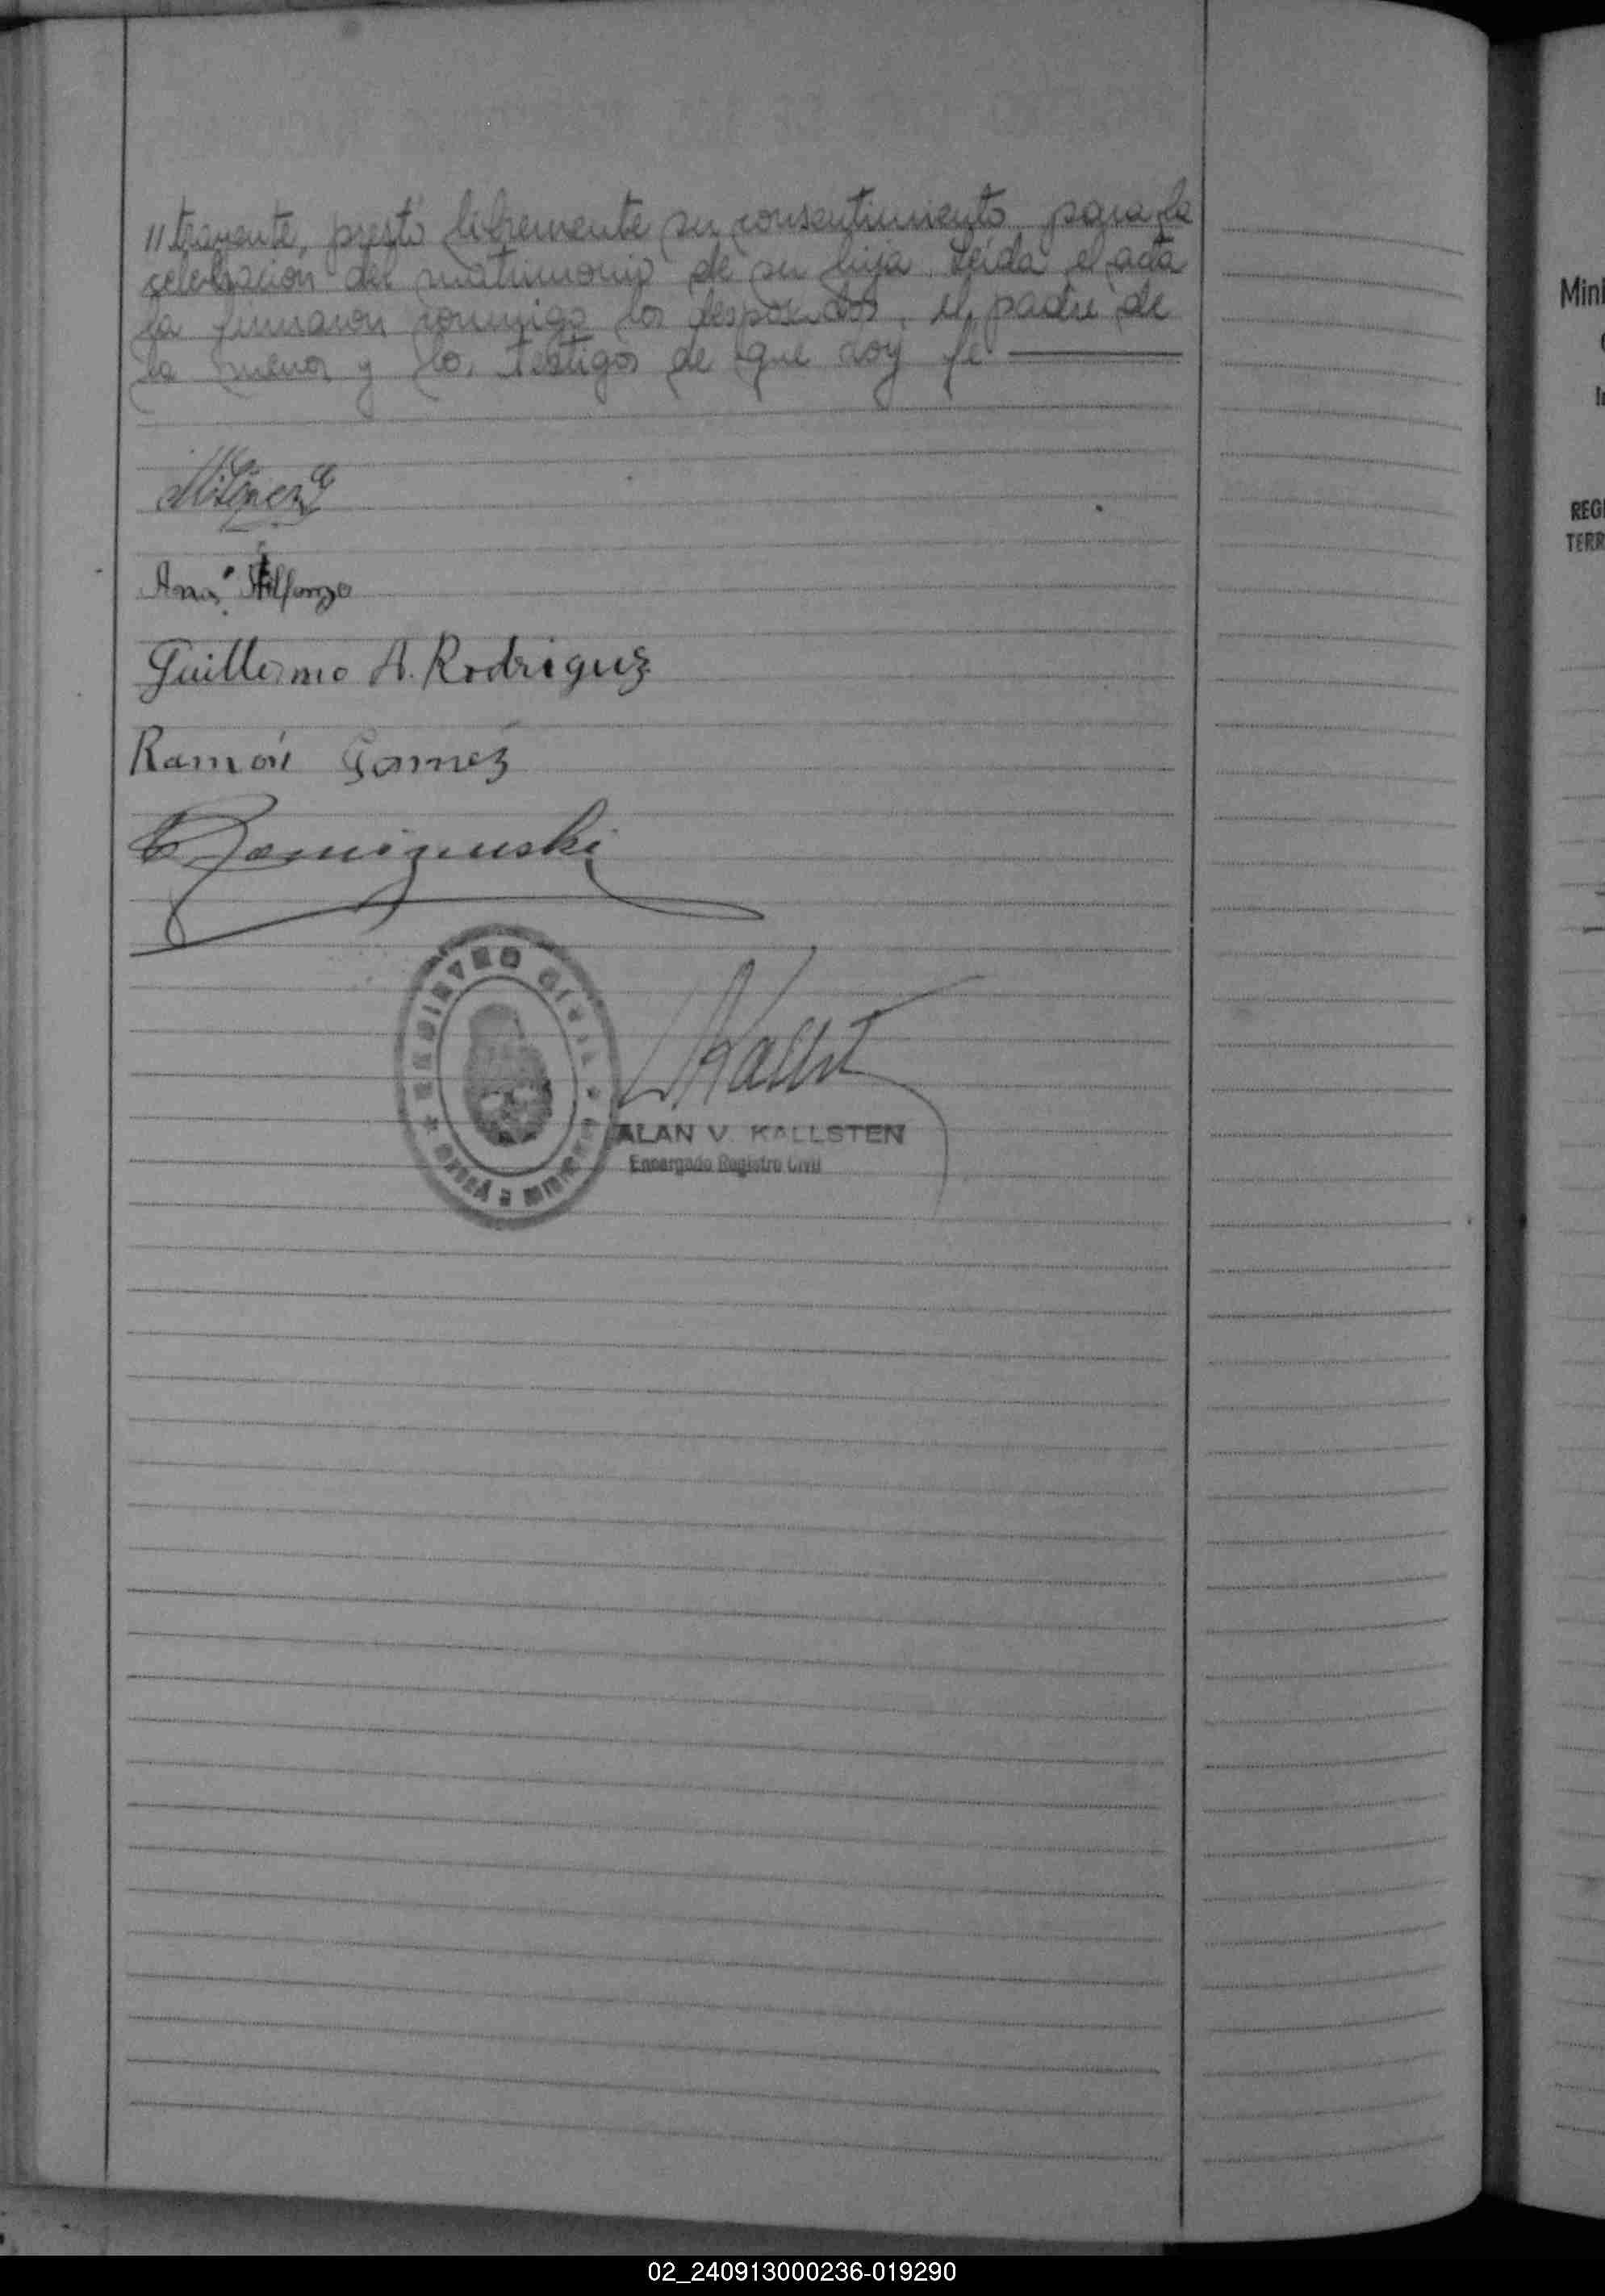 "trayente, prestó libremente su consentimiento para la
celebración del matrimonio de su hija. Leída el acta
la firmaron conmigo los desposados, el padre de
la menor y los testigos de que doy fe
Ana Alfonzo
Guillermo A. Rodriguez
Ramón Gomez
REGISTRO CIVIL
ALAN V. KALLSTEN
Encargado Registro Civil
Mini
REGI
TERR
02_240913000236-019290